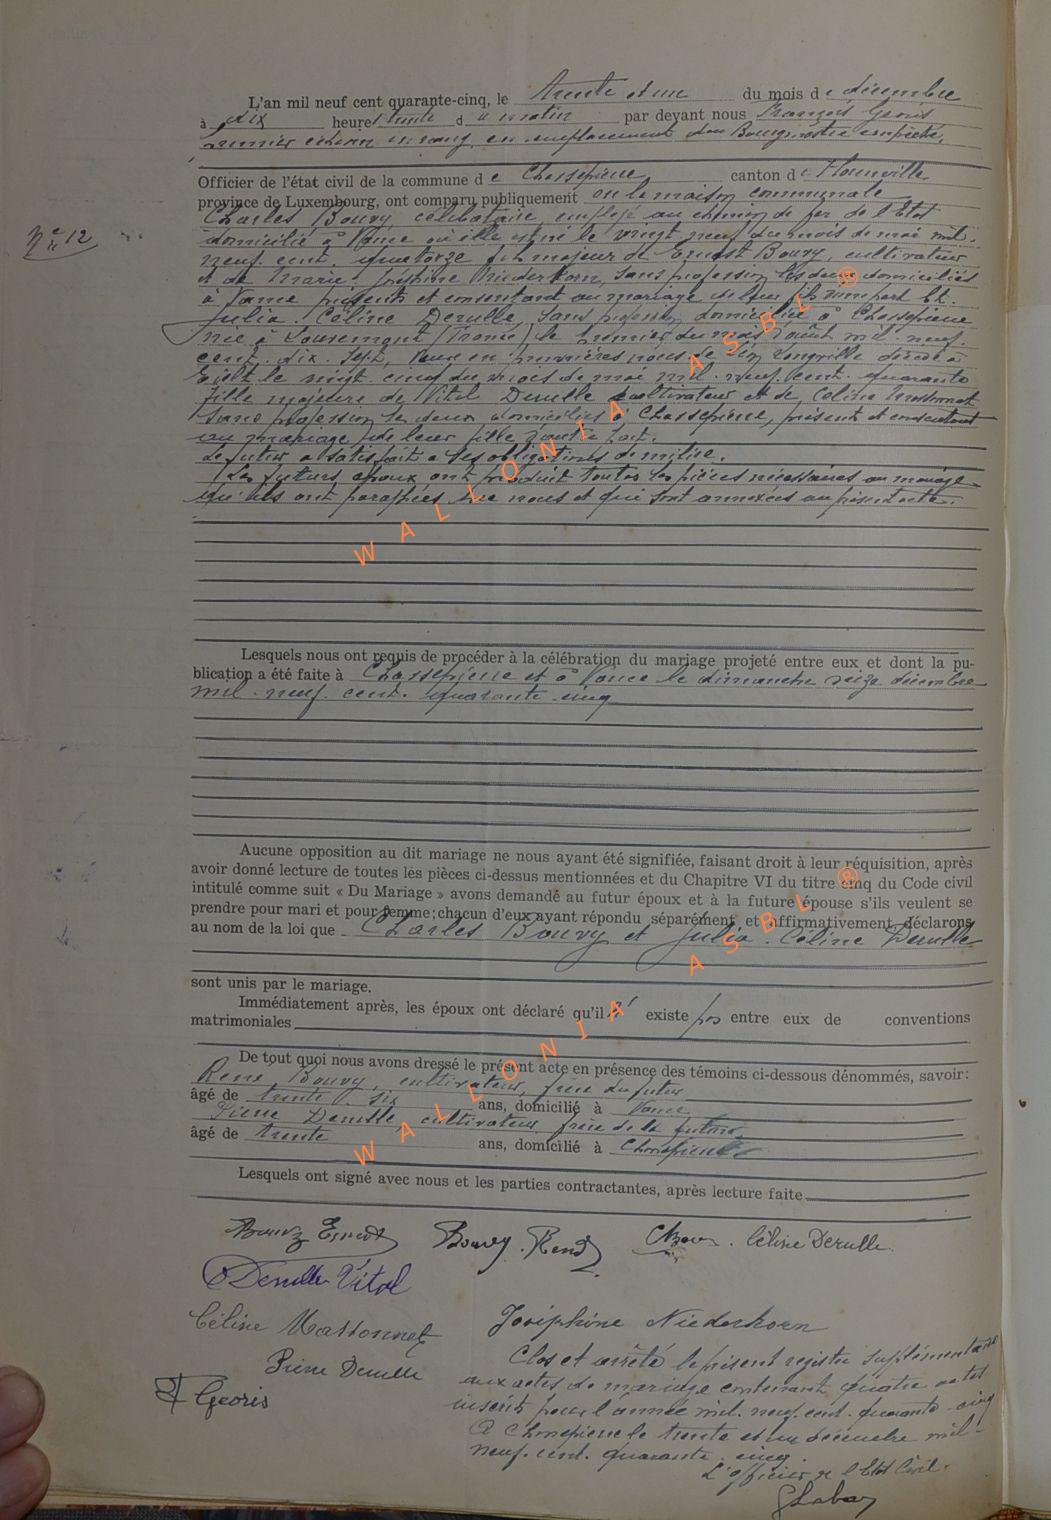 L'an mil neuf cent quarante-cinq, le trente et un du mois de décembre
à dix heures trente du matin par devant nous François Georis
premier échevin en rang, en remplacement du Bourgmestre empêché,
Officier de l'état civil de la commune de Chassepierre canton de Florenville
province de Luxembourg, ont comparu publiquement en la maison communale
Charles Bouvy, célibataire, employé au chemin de fer de l'Etat
N° 12
domicilié à Vance où il est né le vingt neuf du mois de mai mil.
neuf. cent. quatorze fils majeur de Ernest Bouvy, cultivateur
et de Marie. Joséphine Niederkorn, sans profession les deux domiciliés
à Vance présents et consentant au mariage de leur fils d'une part Et.
Julia. Céline Derulle, sans profession domiciliée à Chassepierre
née à Louvemont (France) le premier du mois d'août mil. neuf.
cent. dix. sept, veuve en premières noces de décédé à
le vingt. cinq du mois de mai mil. neuf. cent. quarante
fille majeure de Vital Derulle cultivateur et de Céline Massonnet
sans profession les deux domiciliés à Chassepierre, présents et consentant
au mariage de leur fille d'autre part.
Le futur a satisfait à ses obligations de milice.
Les futurs époux ont produit toutes les pièces nécessaires au mariage
qu'ils ont paraphées avec nous et qui sont annexées au présent acte.
Lesquels nous ont requis de procéder à la célébration du mariage projeté entre eux et dont la pu-
blication a été faite à Chassepierre et à Vance le dimanche seize décembre
mil. neuf. cent. quarante. cinq
Aucune opposition au dit mariage ne nous ayant été signifiée, faisant droit à leur réquisition, après
avoir donné lecture de toutes les pièces ci-dessus mentionnées et du Chapitre VI du titre cinq du Code civil
intitulé comme suit « Du Mariage » avons demandé au futur époux et à la future épouse s'ils veulent se
prendre pour mari et pour femme; chacun d'eux ayant répondu séparément et affirmativement, déclarons
au nom de la loi que Charles Bouvy et Julia. Céline Derulle
sont unis par le mariage.
Immédiatement après, les époux ont déclaré qu'il n' existe pas entre eux de conventions
matrimoniales
De tout quoi nous avons dressé le présent acte en présence des témoins ci-dessous dénommés, savoir:
René Bouvy, cultivateur, frère du futur
âgé de trente six ans, domicilié à Vance
Pierre Derulle, cultivateur frère de la future
âgé de trente ans, domicilié à Chassepierre
Lesquels ont signé avec nous et les parties contractantes, après lecture faite
Bouvy Ernest Bouvy. René Céline Derulle
Derulle Vital
Céline Massonnet Joséphine Niederkorn
Pierre Derulle
Georis
Clos et arrêté le présent registre supplémentaire
aux actes de mariage contenant quatre actes
inscrits pour l'année mil. neuf. cent. quarante. cinq
A Chassepierre le trente et un décembre mil
neuf. cent. quarante. cinq.
L'officier de l'Etat Civil.
WALLONIA ASBL ®
WALLONIA ASBL ®